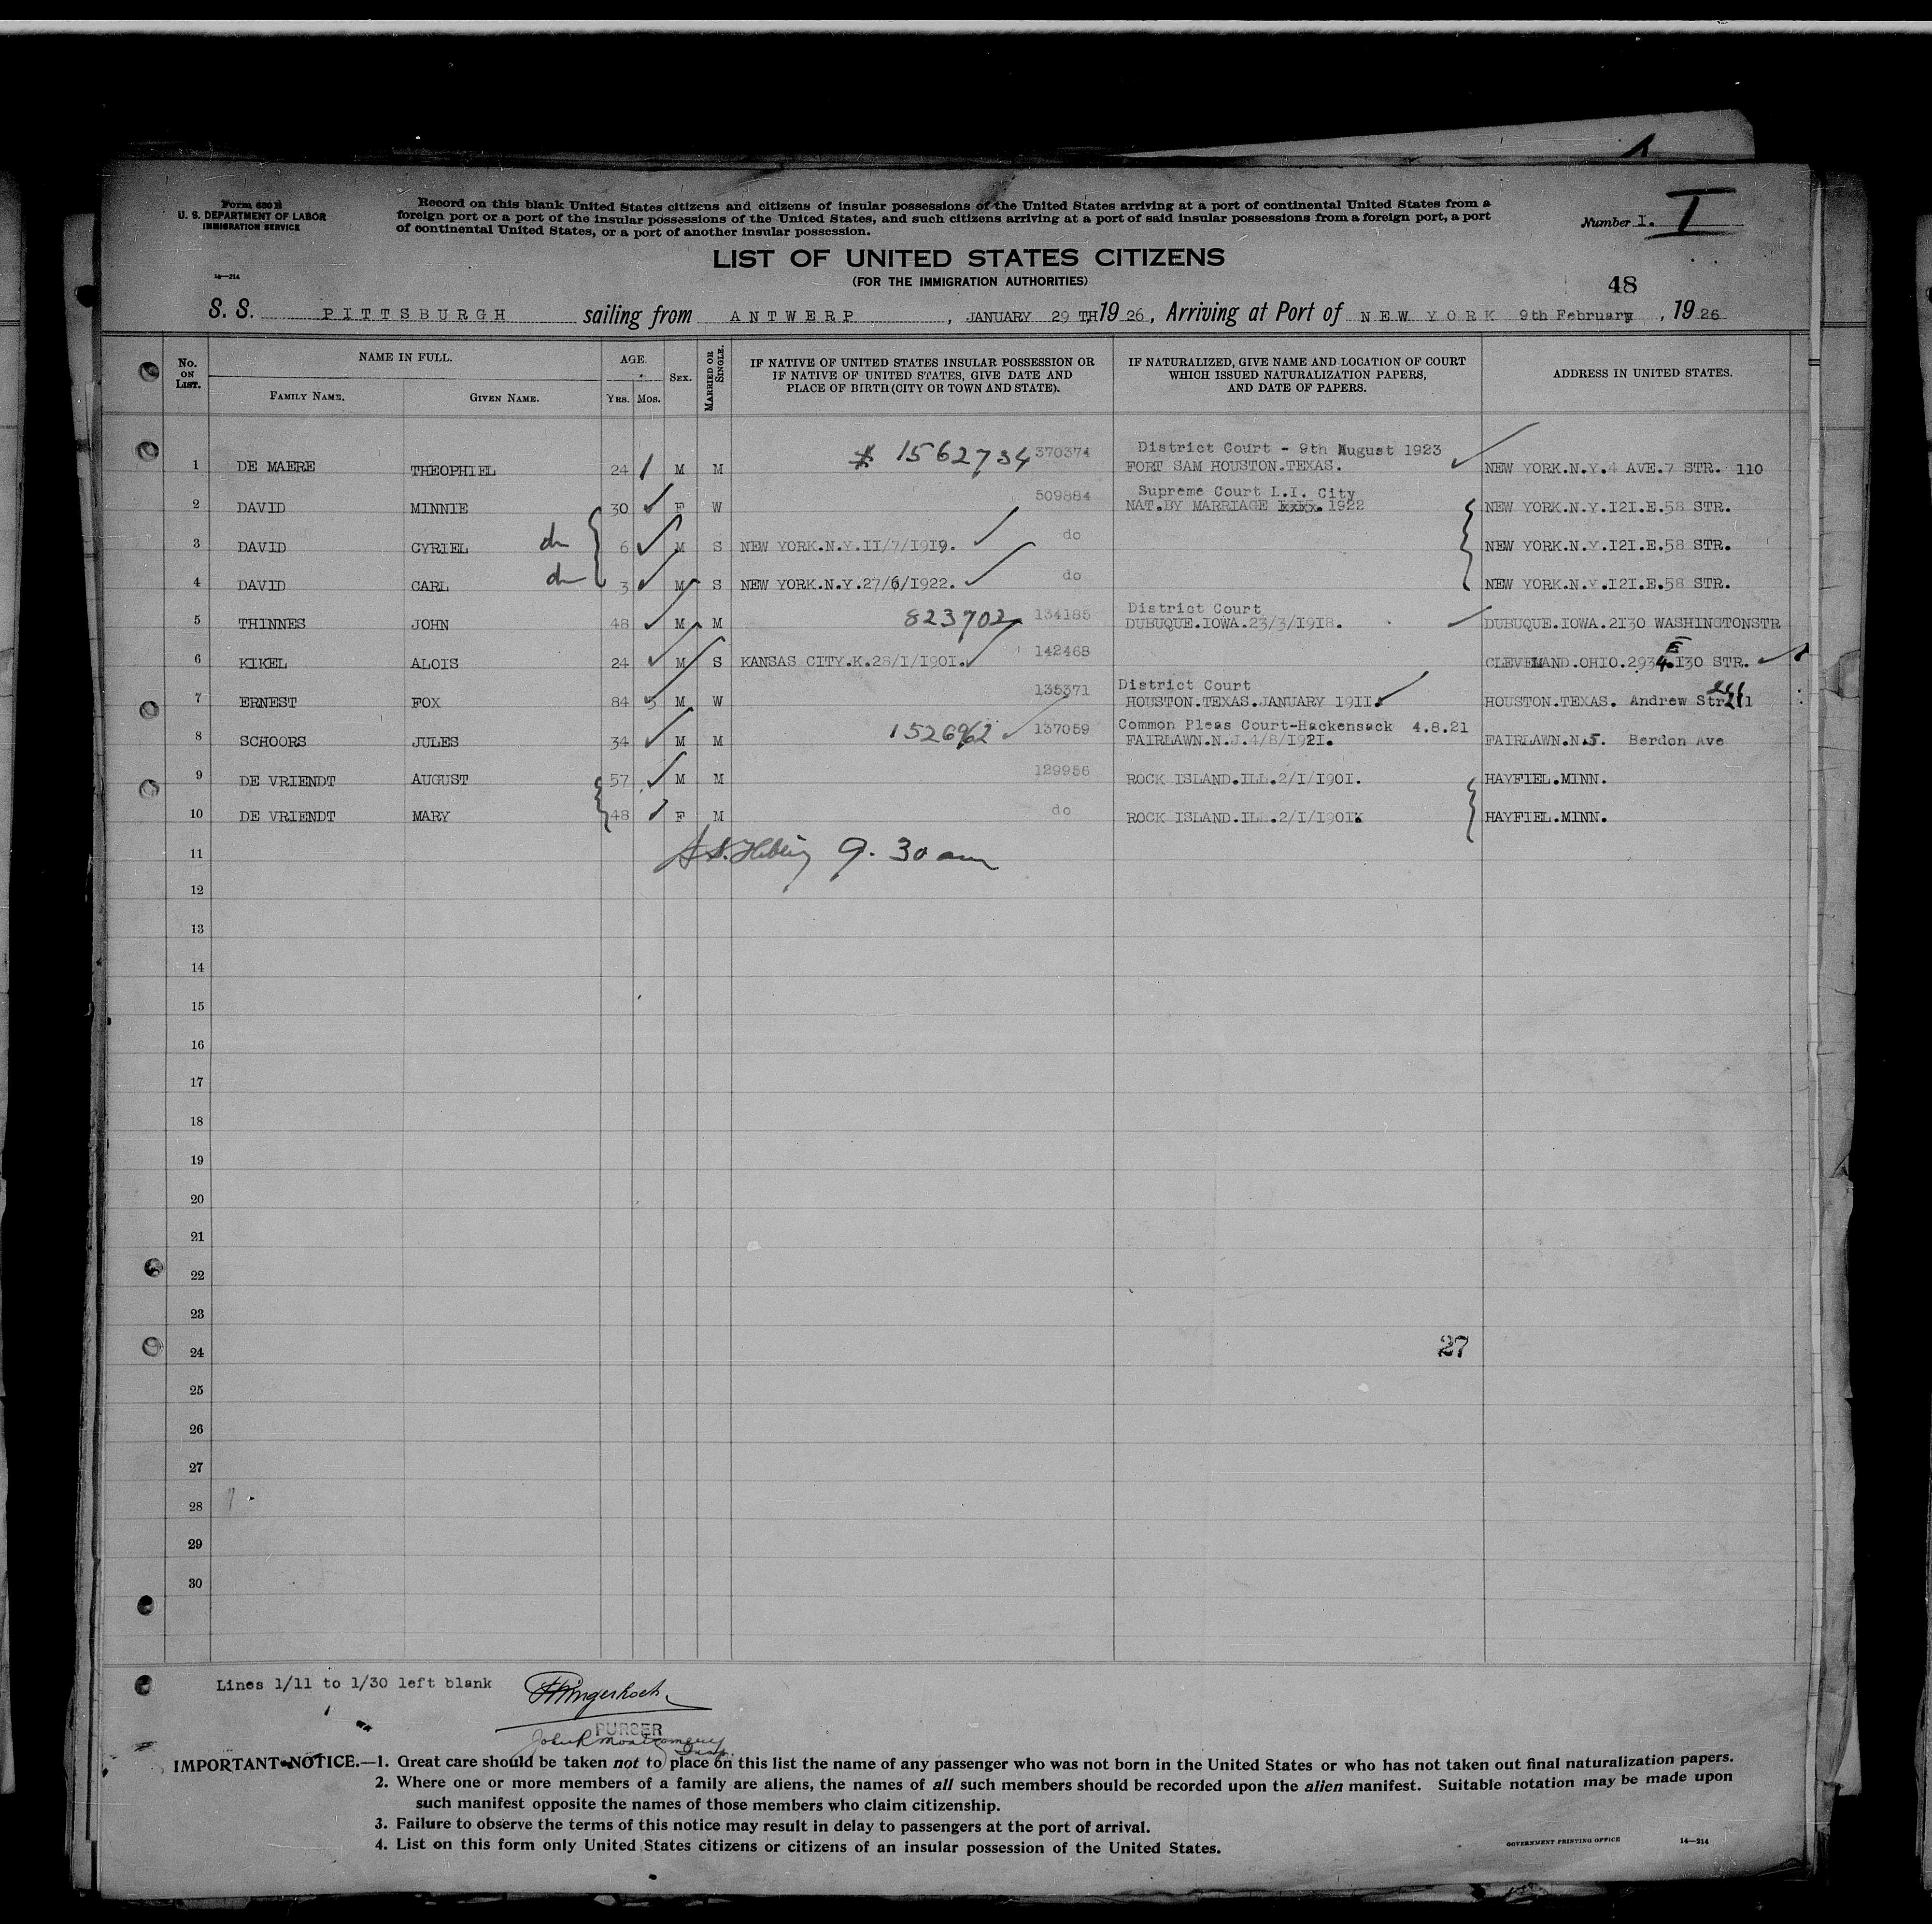 Form 630 B
U. S. DEPARTMENT OF LABOR
IMMIGRATION SERVICE
14—214
Record on this blank United States citizens and citizens of insular possessions of the United States arriving at a port of continental United States from a
foreign port or a port of the insular possessions of the United States, and such citizens arriving at a port of said insular possessions from a foreign port, a port
of continental United States, or a port of another insular possession.
Number I. I
LIST OF UNITED STATES CITIZENS
(FOR THE IMMIGRATION AUTHORITIES)
48
S. S. PITTSBURGH sailing from ANTWERP, JANUARY 29 TH 1926, Arriving at Port of NEW YORK 9th February, 1926
No. ON LIST.
NAME IN FULL.
FAMILY NAME. GIVEN NAME.
AGE.
YRS. MOS.
SEX.
MARRIED OR SINGLE.
IF NATIVE OF UNITED STATES INSULAR POSSESSION OR
IF NATIVE OF UNITED STATES, GIVE DATE AND
PLACE OF BIRTH (CITY OR TOWN AND STATE).
IF NATURALIZED, GIVE NAME AND LOCATION OF COURT
WHICH ISSUED NATURALIZATION PAPERS,
AND DATE OF PAPERS.
ADDRESS IN UNITED STATES.
# 1562734 370374 District Court - 9th August 1923
1 DE MAERE THEOPHIEL 24 M M FORT SAM HOUSTON.TEXAS. NEW YORK.N.Y.4 AVE.7 STR. 110
509884 Supreme Court L.I. City
2 DAVID MINNIE 30 F W NAT.BY MARRIAGE xxxx. 1922 NEW YORK.N.Y.I2I.E.58 STR.
3 DAVID CYRIEL 6 M S NEW YORK.N.Y.II/7/I9I9. do NEW YORK.N.Y.I2I.E.58 STR.
4 DAVID CARL 3 M S NEW YORK.N.Y.27/6/I922. do NEW YORK.N.Y.I2I.E.58 STR.
823702 134185 District Court
5 THINNES JOHN 48 M M DUBUQUE.IOWA.23/3/I9I8. DUBUQUE.IOWA.2I30 WASHINGTONSTR
142468
6 KIKEL ALOIS 24 M S KANSAS CITY.K.28/I/I90I. CLEVELAND.OHIO.2934.E I30 STR.
135371 District Court
7 ERNEST FOX 84 M W HOUSTON.TEXAS.JANUARY I9II. HOUSTON.TEXAS. Andrew Str
1526962 137059 Common Pleas Court-Hackensack 4.8.21
8 SCHOORS JULES 34 M M FAIRLAWN.N.J.4/8/I92I. FAIRLAWN.N.J. Berdon Ave
129956
9 DE VRIENDT AUGUST 57 M M ROCK ISLAND.ILL.2/I/I90I. HAYFIEL.MINN.
10 DE VRIENDT MARY 48 F M do ROCK ISLAND.ILL.2/I/I90I. HAYFIEL.MINN.
11 9.30 am
12
13
14
15
16
17
18
19
20
21
22
23
24 27
25
26
27
28
29
30
Lines 1/11 to 1/30 left blank
PURSER
John R Montgomery
Insp.
IMPORTANT NOTICE.—1. Great care should be taken not to place on this list the name of any passenger who was not born in the United States or who has not taken out final naturalization papers.
2. Where one or more members of a family are aliens, the names of all such members should be recorded upon the alien manifest. Suitable notation may be made upon
such manifest opposite the names of those members who claim citizenship.
3. Failure to observe the terms of this notice may result in delay to passengers at the port of arrival.
4. List on this form only United States citizens or citizens of an insular possession of the United States.
GOVERNMENT PRINTING OFFICE 14—214